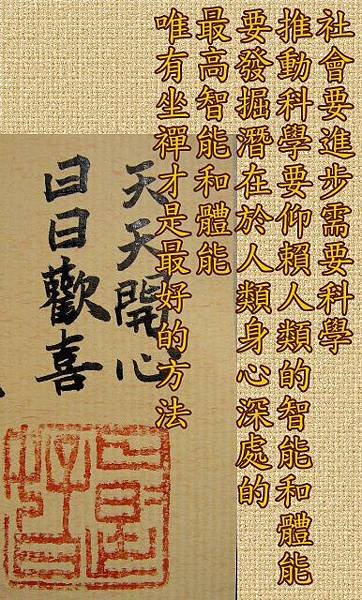 社會要進步需要科學
推動科學要仰賴人類的智能和體能
要發掘潛在於人類身心深處的
最高智能和體能
唯有坐禪才是最好的方法
天天開心
日日歡喜